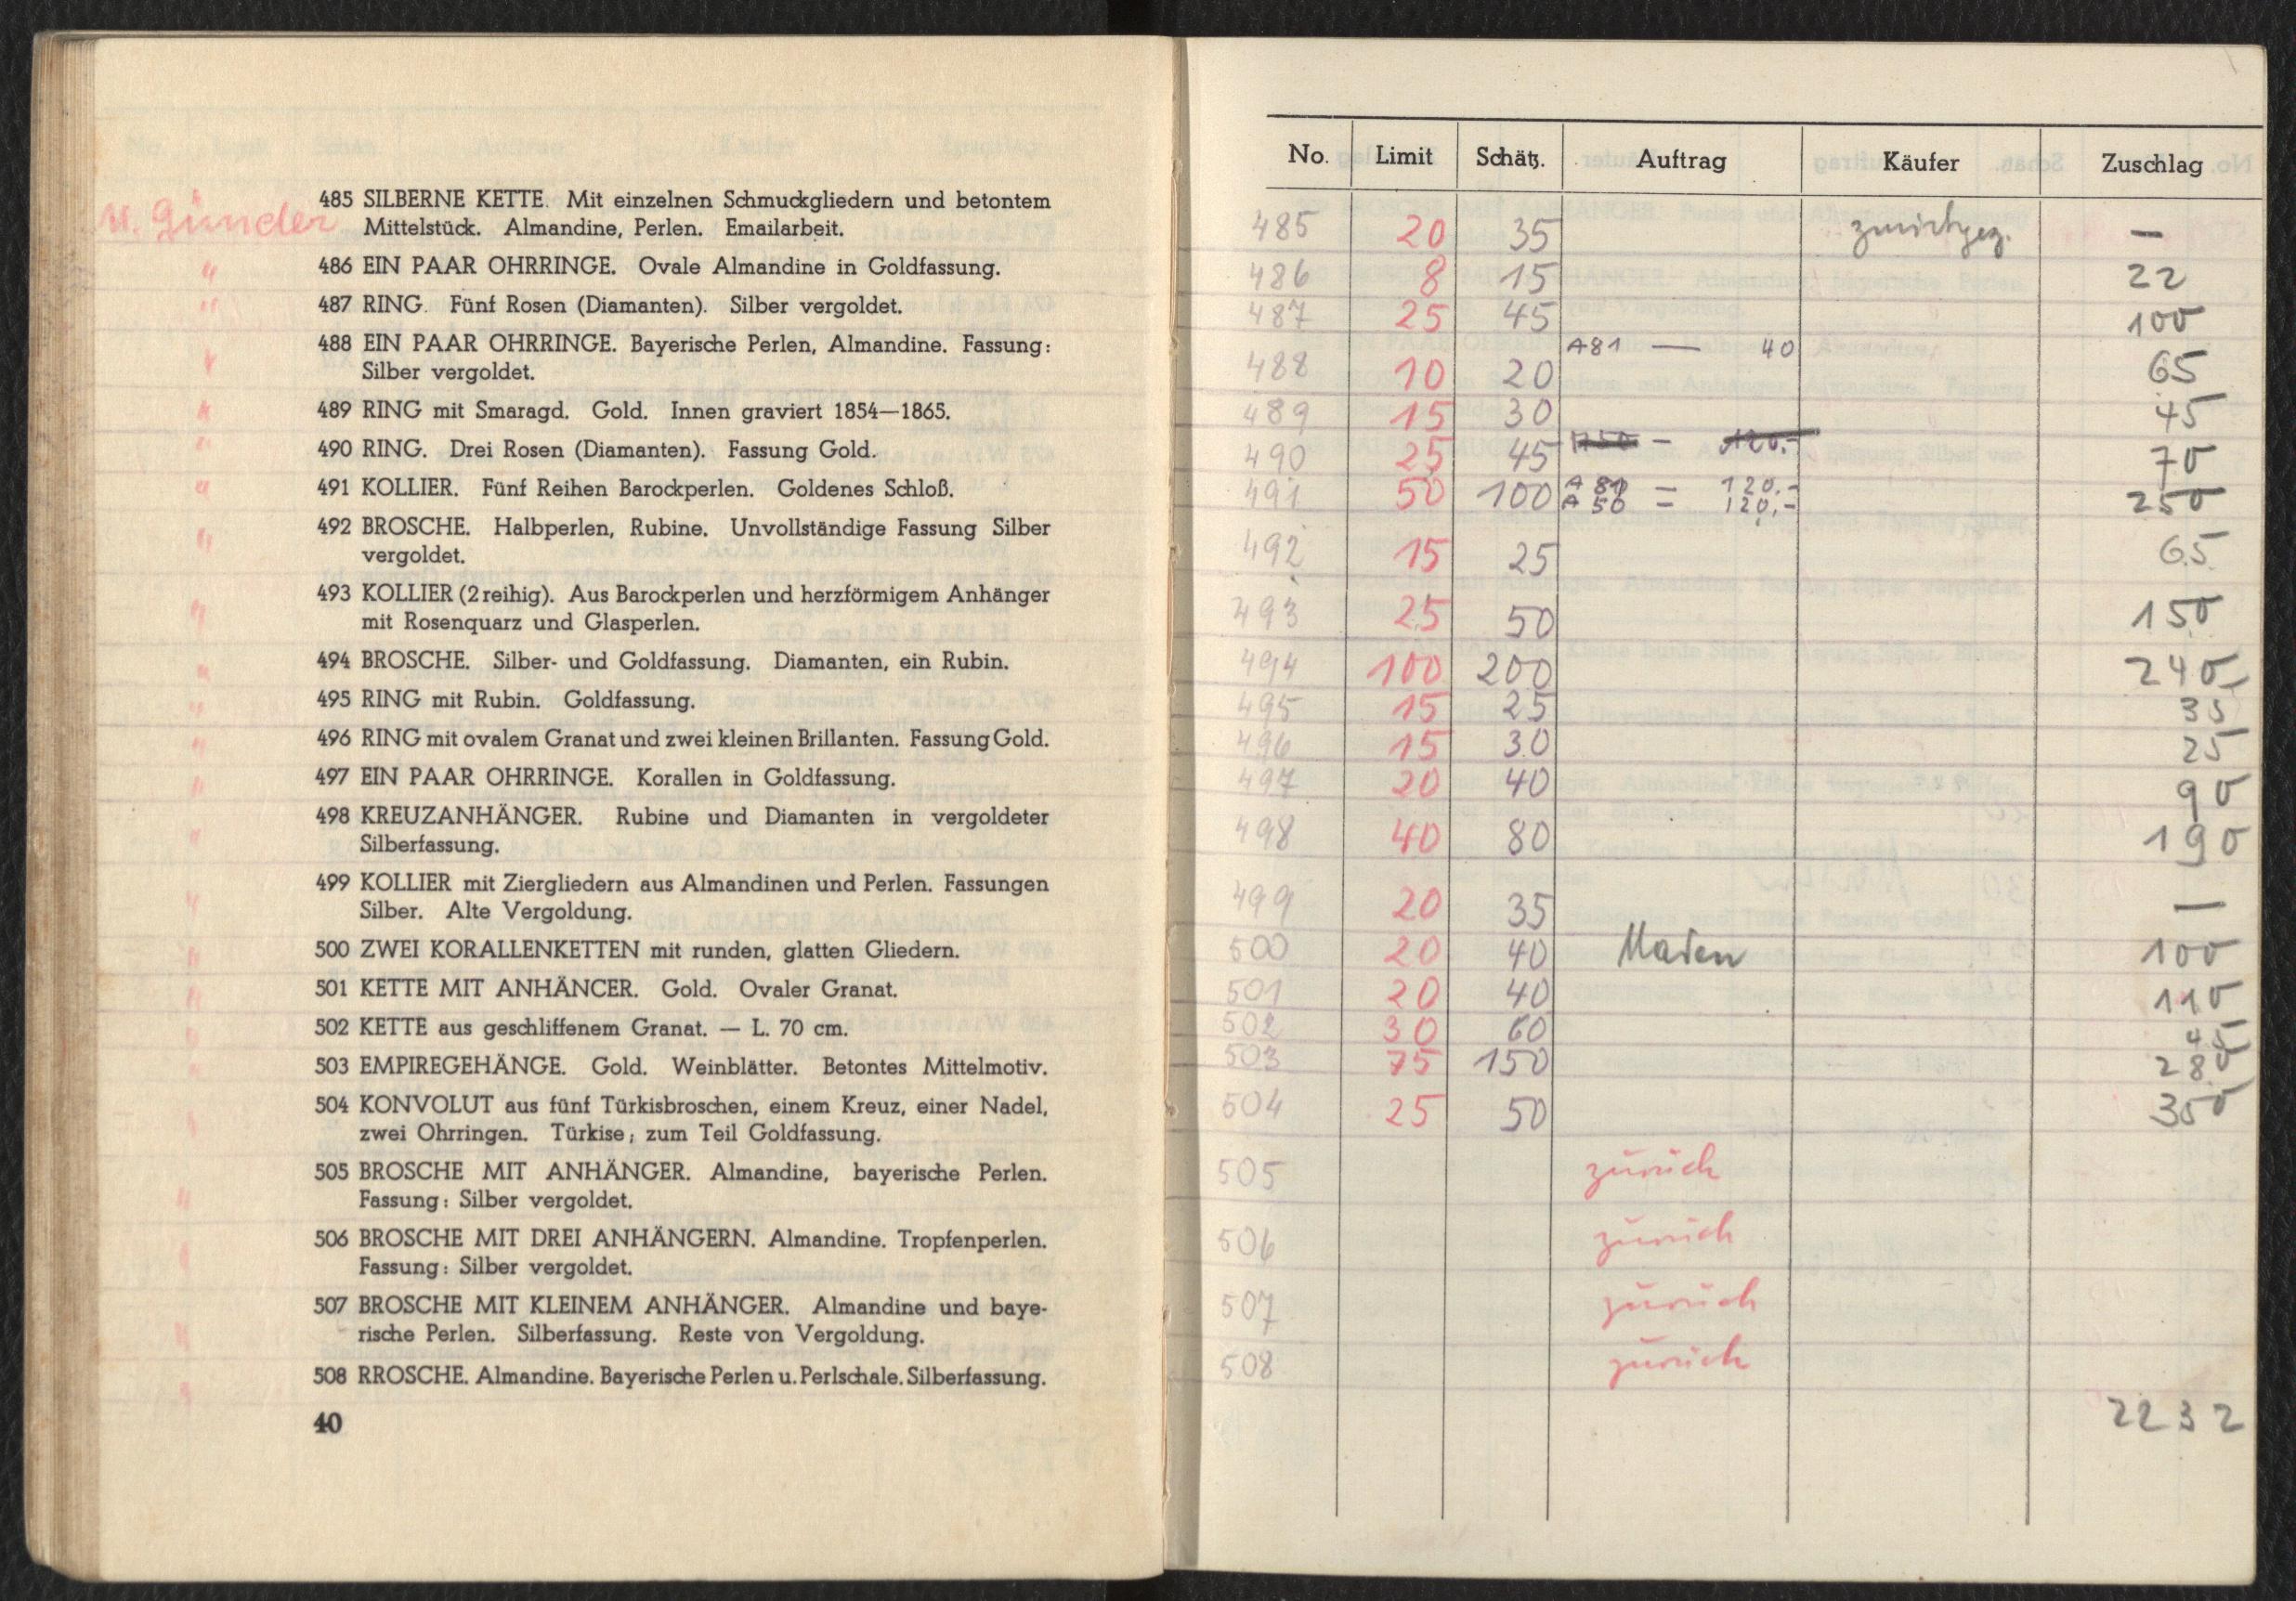 485 SILBERNE KETTE. Mit einzelnen Schmuckgliedern und betontem
Mittelstück. Almandine, Perlen. Emailarbeit.
486 EIN PAAR OHRRINGE. Ovale Almandine in Goldfassung.
487 RING. Fünf Rosen (Diamanten). Silber vergoldet.
488 EIN PAAR OHRRINGE. Bayerische Perlen, Almandine. Fassung:
Silber vergoldet.
489 RING mit Smaragd. Gold. Innen graviert 1854—1865.
490 RING. Drei Rosen (Diamanten). Fassung Gold.
491 KOLLIER. Fünf Reihen Barockperlen. Goldenes Schloß.
492 BROSCHE. Halbperlen, Rubine. Unvollständige Fassung Silber
vergoldet.
493 KOLLIER (2reihig). Aus Barockperlen und herzförmigem Anhänger
mit Rosenquarz und Glasperlen.
494 BROSCHE. Silber- und Goldfassung. Diamanten, ein Rubin.
495 RING mit Rubin. Goldfassung.
496 RING mit ovalem Granat und zwei kleinen Brillanten. Fassung Gold.
497 EIN PAAR OHRRINGE. Korallen in Goldfassung.
498 KREUZANHÄNGER. Rubine und Diamanten in vergoldeter
Silberfassung.
499 KOLLIER mit Ziergliedern aus Almandinen und Perlen. Fassungen
Silber. Alte Vergoldung.
500 ZWEI KORALLENKETTEN mit runden, glatten Gliedern.
501 KETTE MIT ANHÄNCER. Gold. Ovaler Granat.
502 KETTE aus geschliffenem Granat. — L. 70 cm.
503 EMPIREGEHÄNGE. Gold. Weinblätter. Betontes Mittelmotiv.
504 KONVOLUT aus fünf Türkisbroschen, einem Kreuz, einer Nadel,
zwei Ohrringen. Türkise; zum Teil Goldfassung.
505 BROSCHE MIT ANHÄNGER. Almandine, bayerische Perlen.
Fassung: Silber vergoldet.
506 BROSCHE MIT DREI ANHÄNGERN. Almandine. Tropfenperlen.
Fassung: Silber vergoldet.
507 BROSCHE MIT KLEINEM ANHÄNGER. Almandine und baye-
rische Perlen. Silberfassung. Reste von Vergoldung.
508 RROSCHE. Almandine. Bayerische Perlen u. Perlschale. Silberfassung.
40
No. Limit Schätz. Auftrag Käufer Zuschlag
485 20 35 zurückgez. —
486 8 15 22
487 25 45 100
488 10 20 A81 — 40 65
489 15 30 45
490 25 45 — 120.- 70
491 50 100 A 81 — 120.- 250
A 50 — 120.-
492 15 25 65
493 25 50 150
494 100 200 240
495 15 25 35
496 15 30 25
497 20 40 90
498 40 80 190
499 20 35 —
500 20 40 100
501 20 40 110
502 30 60 45
503 75 150 280
504 25 50 350
505 zurück
506 zurück
507 zurück
508 zurück
2232